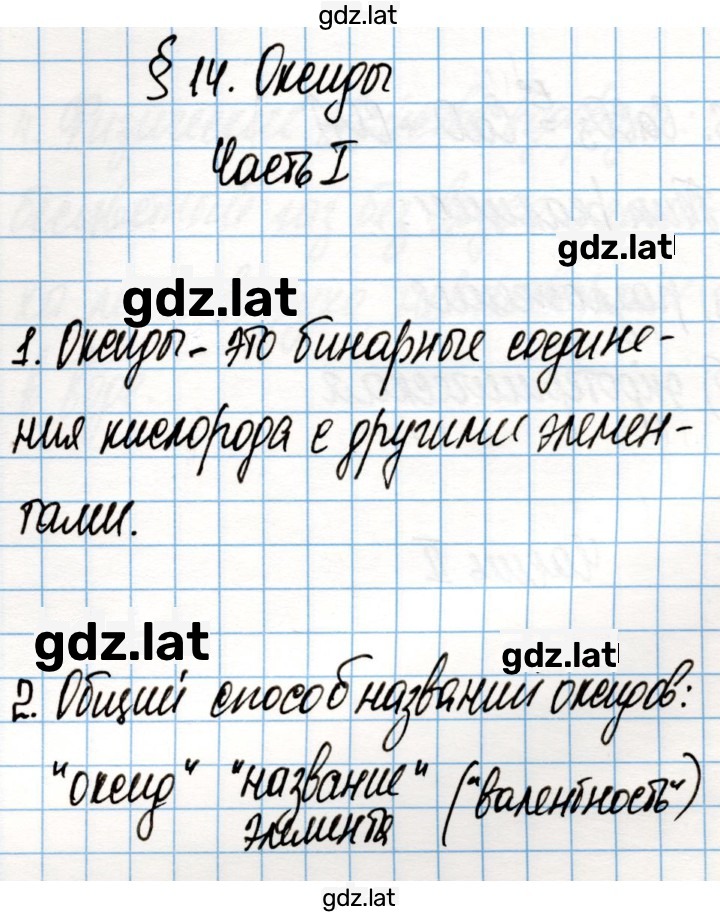 gdz.lat
§ 14. Оксиды
Часть I
gdz.lat
gdz.lat
1. Оксиды - это бинарные соедине-
ния кислорода с другими элемен-
тами.
gdz.lat
gdz.lat
2. Общий способ названий оксидов:
"оксид" "название элемента" ("валентность")
gdz.lat